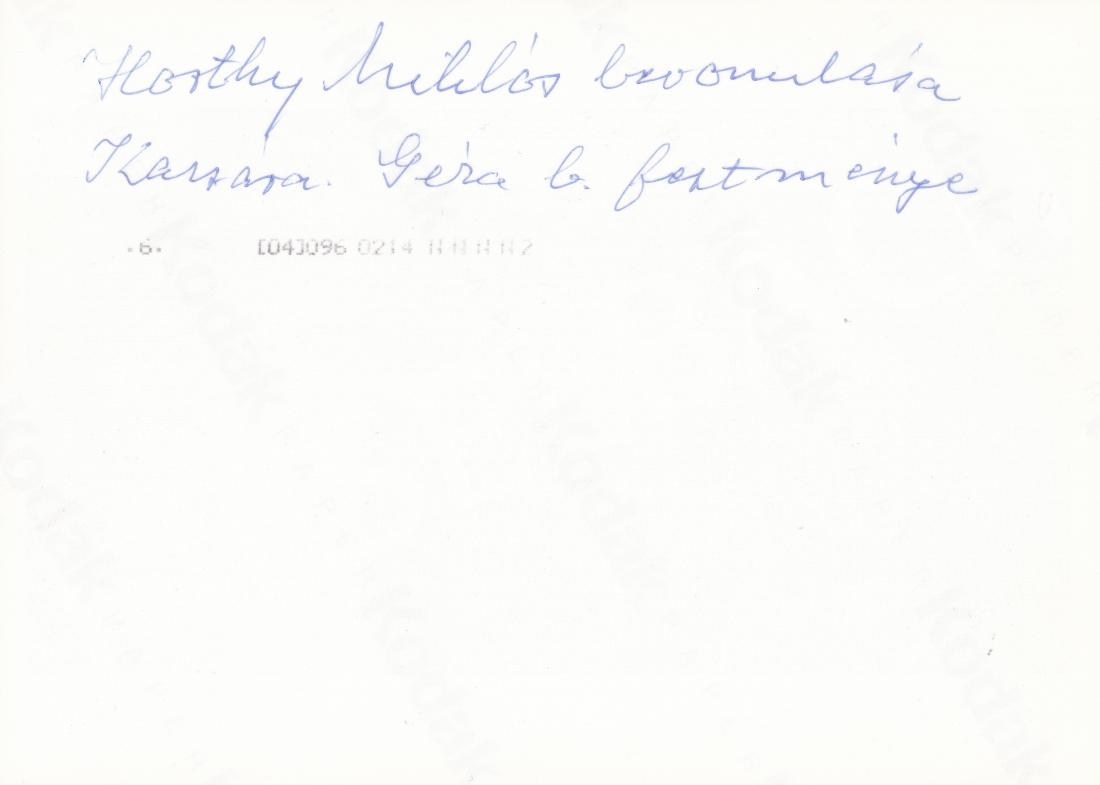 Horthy Miklós bevonulása
Kassára. Géza b. festménye
.6. [04]096 0214 N N N N 2
Kodak
Kodak
Kodak
Kodak
Kodak
Kodak
Kodak
Kodak